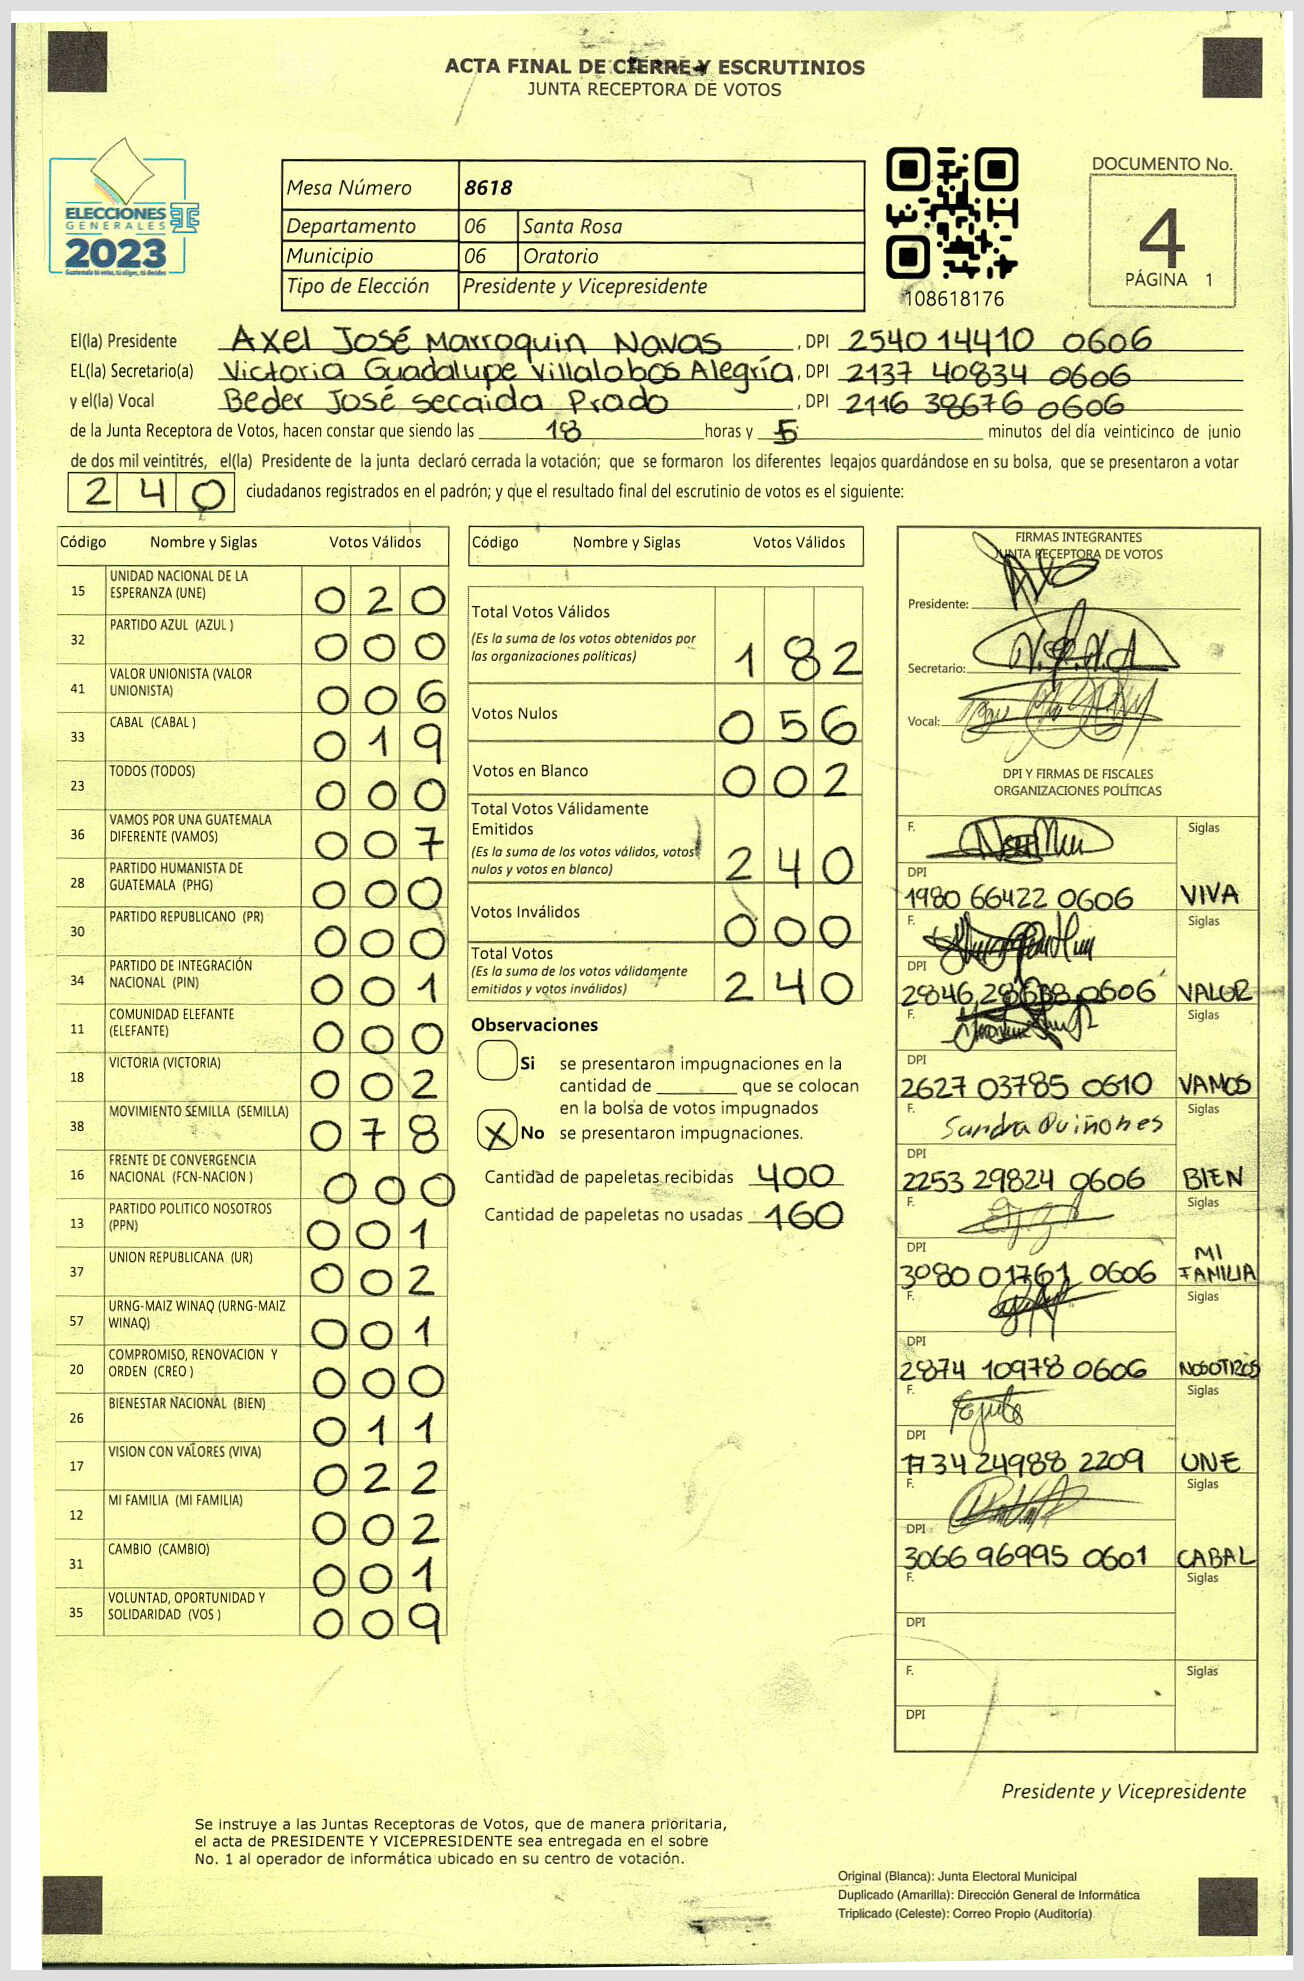 ACTA FINAL DE CIERRE Y ESCRUTINIOS
JUNTA RECEPTORA DE VOTOS
ELECCIONES
GENERALES
2023
Guatemala tú votas, tú eliges, tú decides
Mesa Número 8618
Departamento 06 Santa Rosa
Municipio 06 Oratorio
Tipo de Elección Presidente y Vicepresidente
108618176
DOCUMENTO No.
4
PÁGINA 1
El(la) Presidente Axel José Marroquin Navas, DPI 2540 14410 0606
EL(la) Secretario(a) Victoria Guadalupe Villalobos Alegría, DPI 2137 40834 0606
y el(la) Vocal Beder José secaida Prado, DPI 2116 38676 0606
de la Junta Receptora de Votos, hacen constar que siendo las 18 horas y 5 minutos del día veinticinco de junio
de dos mil veintitrés, el(la) Presidente de la junta declaró cerrada la votación; que se formaron los diferentes legajos quardándose en su bolsa, que se presentaron a votar
240 ciudadanos registrados en el padrón; y que el resultado final del escrutinio de votos es el siguiente:
Código Nombre y Siglas Votos Válidos
15 UNIDAD NACIONAL DE LA ESPERANZA (UNE) 020
32 PARTIDO AZUL (AZUL ) 000
41 VALOR UNIONISTA (VALOR UNIONISTA) 006
33 CABAL (CABAL ) 019
23 TODOS (TODOS) 000
36 VAMOS POR UNA GUATEMALA DIFERENTE (VAMOS) 007
28 PARTIDO HUMANISTA DE GUATEMALA (PHG) 000
30 PARTIDO REPUBLICANO (PR) 000
34 PARTIDO DE INTEGRACIÓN NACIONAL (PIN) 001
11 COMUNIDAD ELEFANTE (ELEFANTE) 000
18 VICTORIA (VICTORIA) 002
38 MOVIMIENTO SEMILLA (SEMILLA) 078
16 FRENTE DE CONVERGENCIA NACIONAL (FCN-NACION ) 000
13 PARTIDO POLITICO NOSOTROS (PPN) 001
37 UNION REPUBLICANA (UR) 002
57 URNG-MAIZ WINAQ (URNG-MAIZ WINAQ) 001
20 COMPROMISO, RENOVACION Y ORDEN (CREO ) 000
26 BIENESTAR NACIONAL (BIEN) 011
17 VISION CON VALORES (VIVA) 022
12 MI FAMILIA (MI FAMILIA) 002
31 CAMBIO (CAMBIO) 001
35 VOLUNTAD, OPORTUNIDAD Y SOLIDARIDAD (VOS ) 009
Código Nombre y Siglas Votos Válidos
Total Votos Válidos
(Es la suma de los votos obtenidos por
las organizaciones políticas) 182
Votos Nulos 056
Votos en Blanco 002
Total Votos Válidamente
Emitidos
(Es la suma de los votos válidos, votos
nulos y votos en blanco) 240
Votos Inválidos 000
Total Votos
(Es la suma de los votos válidamente
emitidos y votos inválidos) 240
Observaciones
Si se presentaron impugnaciones en la
cantidad de ________ que se colocan
en la bolsa de votos impugnados
X No se presentaron impugnaciones.
Cantidad de papeletas recibidas 400
Cantidad de papeletas no usadas 160
FIRMAS INTEGRANTES
JUNTA RECEPTORA DE VOTOS
Presidente:
Secretario:
Vocal:
DPI Y FIRMAS DE FISCALES
ORGANIZACIONES POLÍTICAS
F. Siglas
DPI
1980 66422 0606 VIVA
F. Siglas
DPI
2846 0606 VALOR
F. Siglas
DPI
2627 03785 0610 VAMOS
F. Sandra Quiñones Siglas
DPI
2253 29824 0606 BIEN
F. Siglas
DPI
3080 01761 0606 MI FAMILIA
F. Siglas
DPI
2874 10978 0606 NOSOTROS
F. Siglas
DPI
1734 24988 2209 UNE
F. Siglas
DPI
3066 96995 0601 CABAL
F. Siglas
DPI
F. Siglas
DPI
Presidente y Vicepresidente
Se instruye a las Juntas Receptoras de Votos, que de manera prioritaria,
el acta de PRESIDENTE Y VICEPRESIDENTE sea entregada en el sobre
No. 1 al operador de informática ubicado en su centro de votación.
Original (Blanca): Junta Electoral Municipal
Duplicado (Amarilla): Dirección General de Informática
Triplicado (Celeste): Correo Propio (Auditoría)